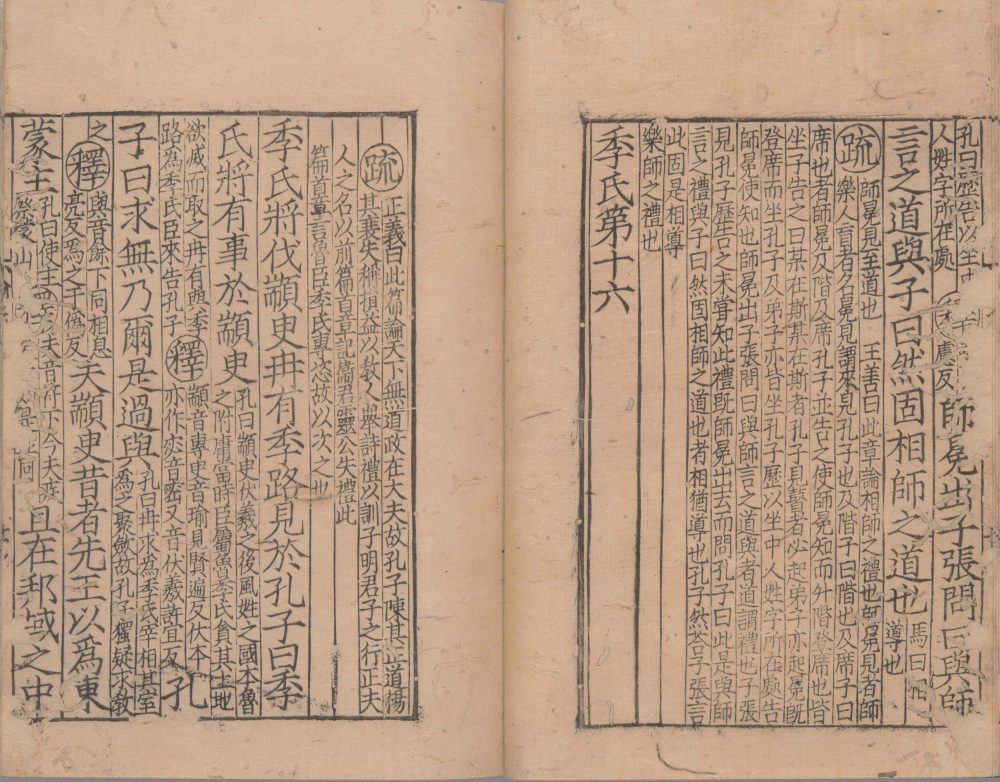 孔曰歷告以坐中
人姓字所在處
應反
師冕出子張問曰與師
言之道與子曰然固相師之道也
馬曰相
導也
疏
師冕見至道也　王善曰此章論相師之禮也師冕見者師
樂人盲者名冕見謂來見孔子也及階子曰階也及席子曰
席也者師冕及階及席孔子並告之使師冕知而升階登席也皆
坐子告之曰某在斯某在斯者孔子見瞽者必起弟子亦起冕既
登席而坐孔子及弟子亦皆坐孔子歷以坐中人姓字所在處告
師冕使知也師冕出子張問曰與師言之道與者道謂禮也子張
見孔子歷告之未嘗知此禮既師冕出去而問孔子曰此是與師
言之禮與子曰然固相師之道也者相猶導也孔子然荅子張言
此固是相導
樂師之禮也
季氏第十六
疏
正義曰此篇論天下無道政在大夫故孔子陳其正道揚
其衰失稱損益以教人舉詩禮以訓子明君子之行正夫
人之名以前篇首章記衛君靈公失禮此
篇首章言魯臣季氏專恣故以次之也
季氏將伐顓臾冉有季路見於孔子曰季
氏將有事於顓臾
孔曰顓臾伏羲之後風姓之國本魯
之附庸當時臣屬魯季氏貪其土地
欲滅而取之冉有與季
路為季氏臣來告孔子
釋
顓音專臾音瑜見賢遍反伏本
亦作宓音密又音伏羲許宜反
孔
子曰求無乃爾是過與
孔曰冉求為季氏宰相其室
為之聚斂故孔子獨疑求教
之
釋
與音餘下同相息
亮反為之于偽反
夫顓臾昔者先王以為東
蒙主
孔曰使主
祭蒙山
且在邦域之中